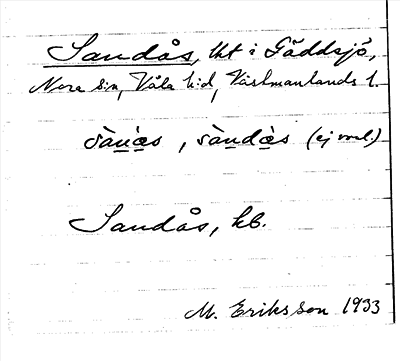 Sandås, lht i Gäddsjö,
Nora sn, Våla hd, Västmanlands l.
sàǹås, sàndås (ej vml.)
Sandås, kb.
M. Eriksson 1933